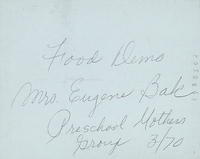 Food Demo
Mrs. Eugene Bak
Preschool Mothers
Group 3/70